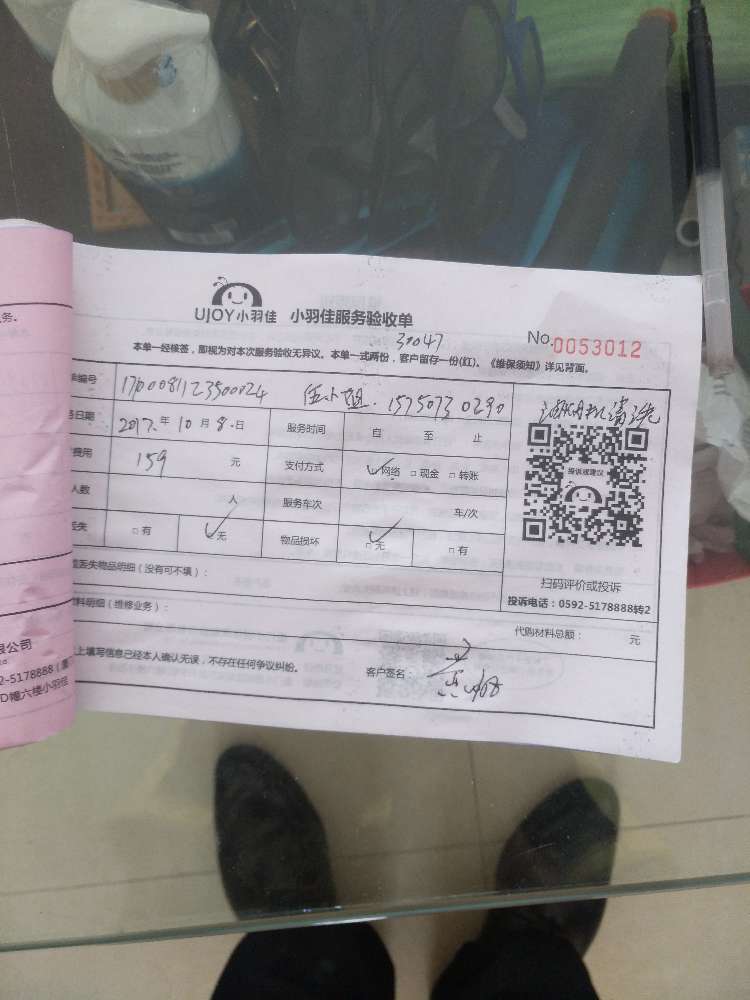 UJOY小羽佳 小羽佳服务验收单
30047
No.0053012
本单一经核签，即视为对本次服务验收无异议。本单一式两份，客户留存一份(红)。《维保须知》详见背面。
单编号 1700081123500024 伍小姐. 15750730290
务日期 2017.年 10 月 8.日 服务时间 自 至 止
费用 159 元 支付方式 网络 □现金 □转账
人数 人 服务车次 车/次
丢失 □有 无 物品损坏 □无 □有
投诉或建议
扫码评价或投诉
投诉电话：0592-5178888转2
丢失物品明细（没有可不填）：
材料明细（维修业务）： 代购材料总额： 元
上填写信息已经本人确认无误，不存在任何争议纠纷。 客户签名：
务。
限公司
2-5178888
D幢六楼小羽佳